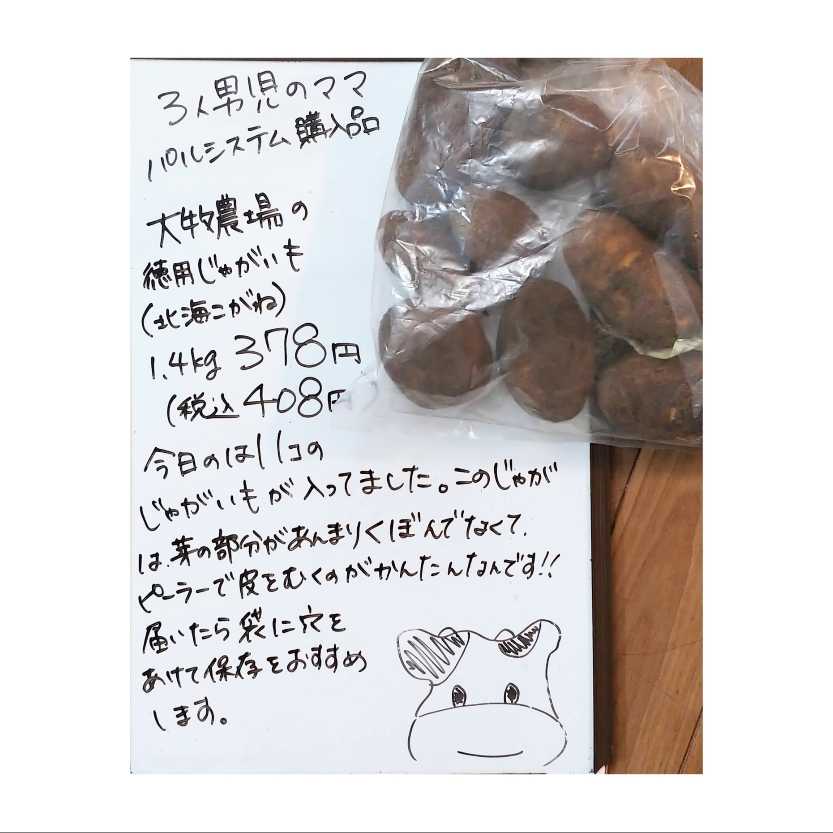 3人男児のママ
パルシステム購入品
大牧農場の
徳用じゃがいも
(北海こがね)
1.4kg 378円
(税込408円
今日のは11コの
じゃがいもが入ってました。このじゃが
は、芽の部分があんまりくぼんでなくて、
ピーラーで皮をむくのがかんたんなんです!!
届いたら袋に穴を
あけて保存をおすすめ
します。